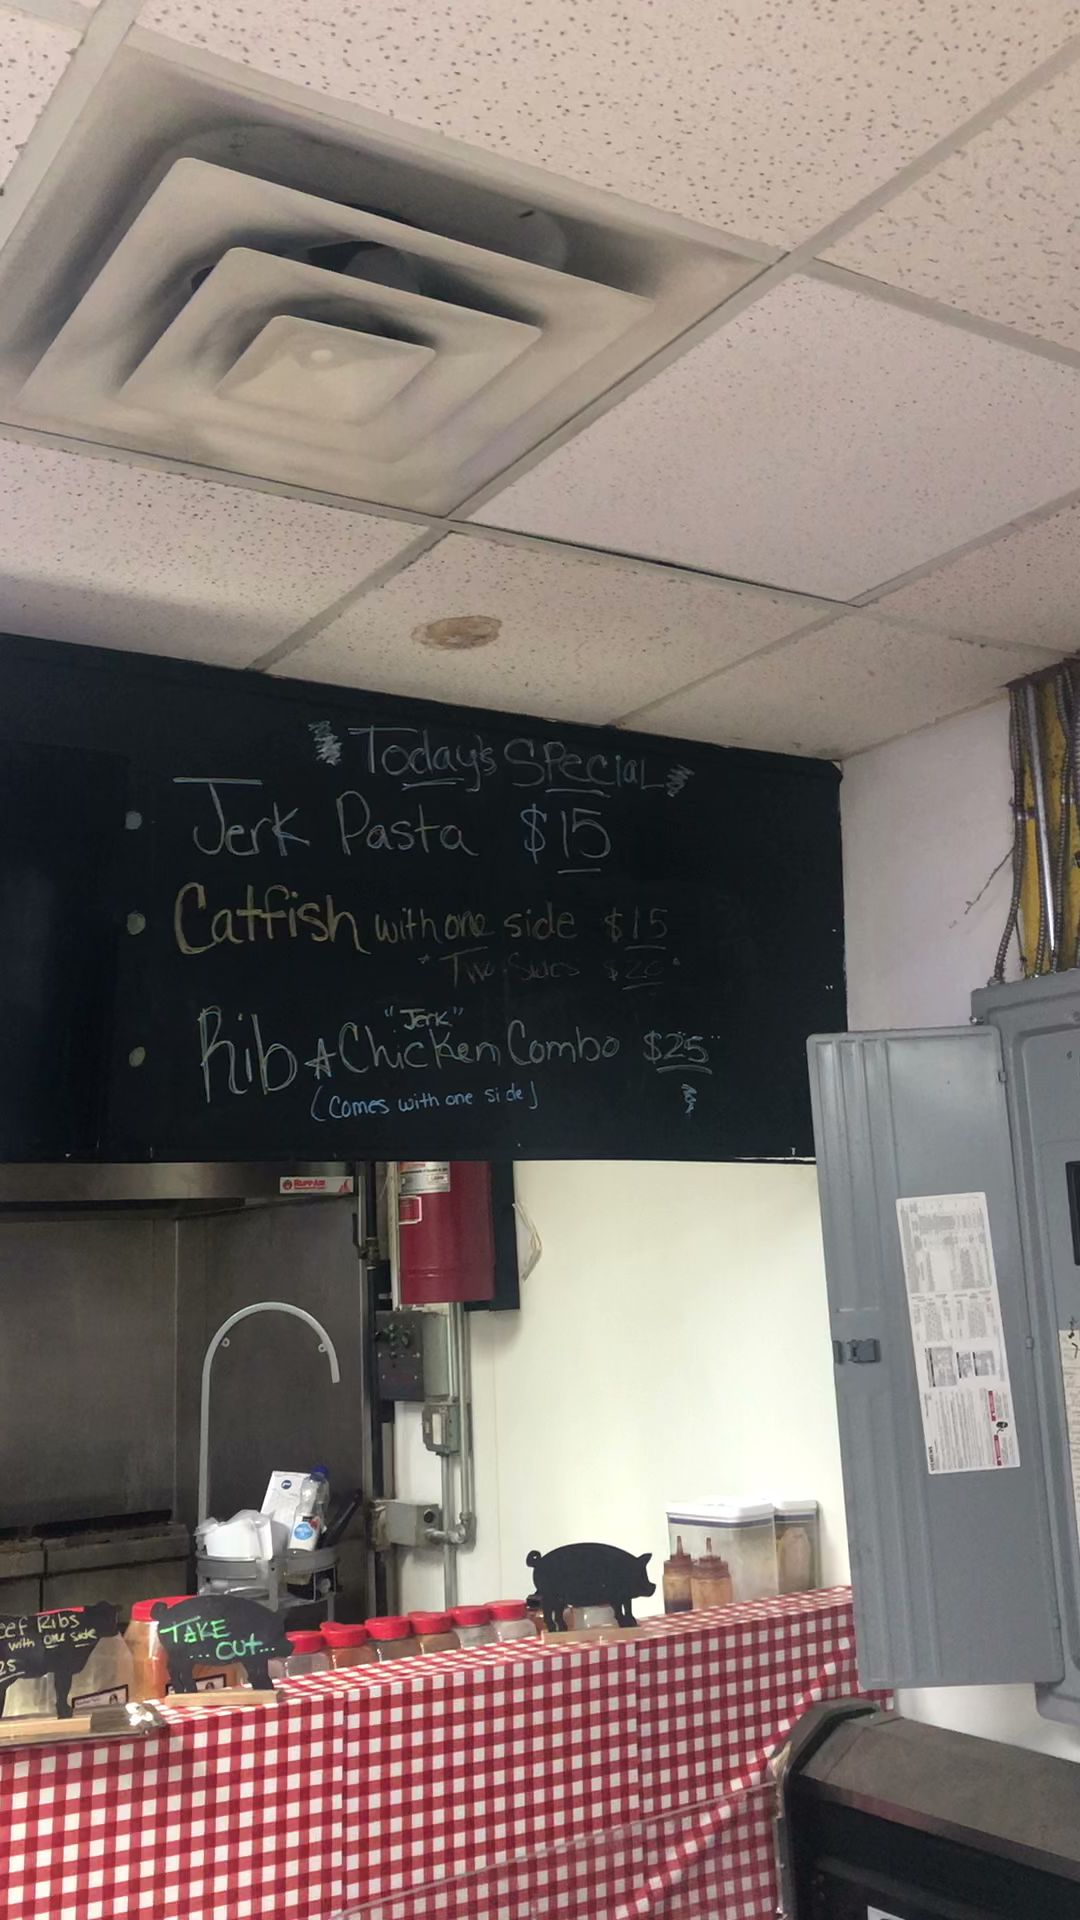 Today's Special
Jerk Pasta $15
Catfish with one side $15
* Two Sides $20 *
"Jerk"
Rib & Chicken Combo $25
(Comes with one side)
RUPP AIR
eef Ribs
with one side
25
TAKE
...OUT...
SIEMENS